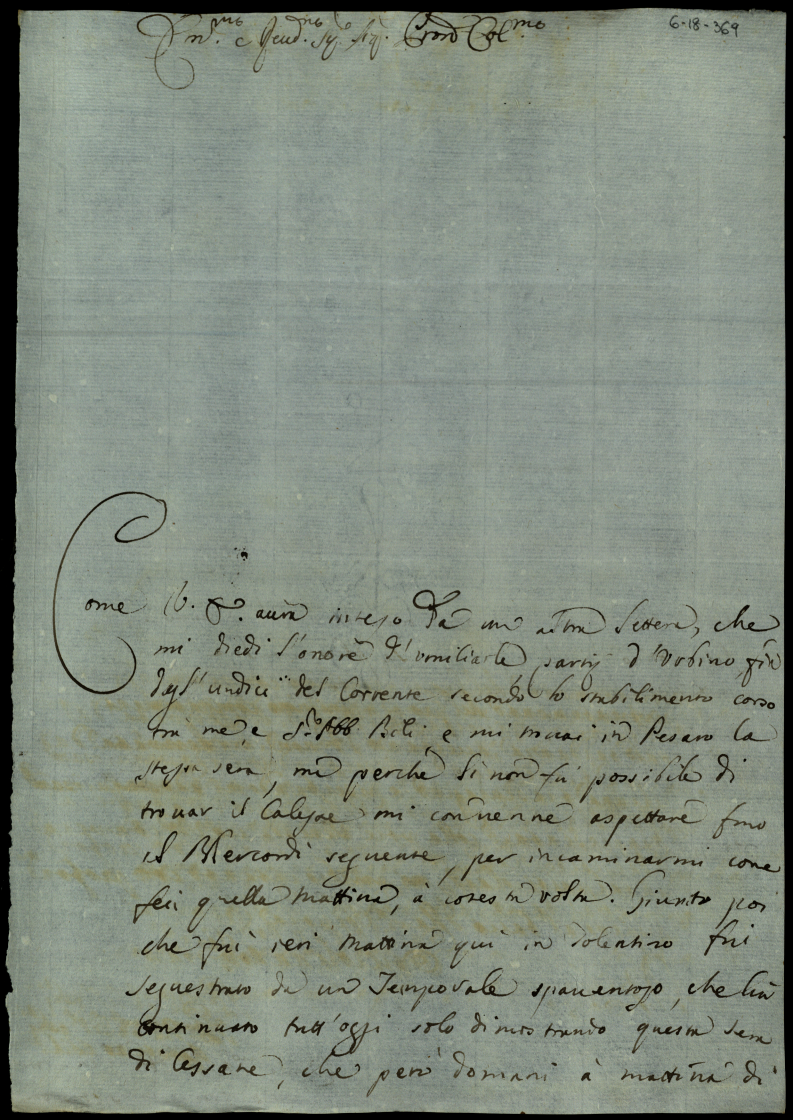 6-18-369
Come V. S. avrà inteso da un altra lettera, che
mi diedi l'onore d'umiliarle partij d'Urbino fin
dagl'undici del Corrente secondo lo stabilimento corso
tra me, e Abb e mi trovai in Pesaro la
stessa sera, mà perche li non fù possibile di
trovar il Calesse mi convenne aspettare fino
il Mercordì seguente, per incaminarmi come
feci quella mattina, à cotesta volta. Giunto poi
che fui ieri mattina quì in Tolentino fui
sequestrato da un Temporale spauentoso, che hà
continuato tutt'oggi solo dimostrando questa sera
di Cessare, che però domani à mattina di